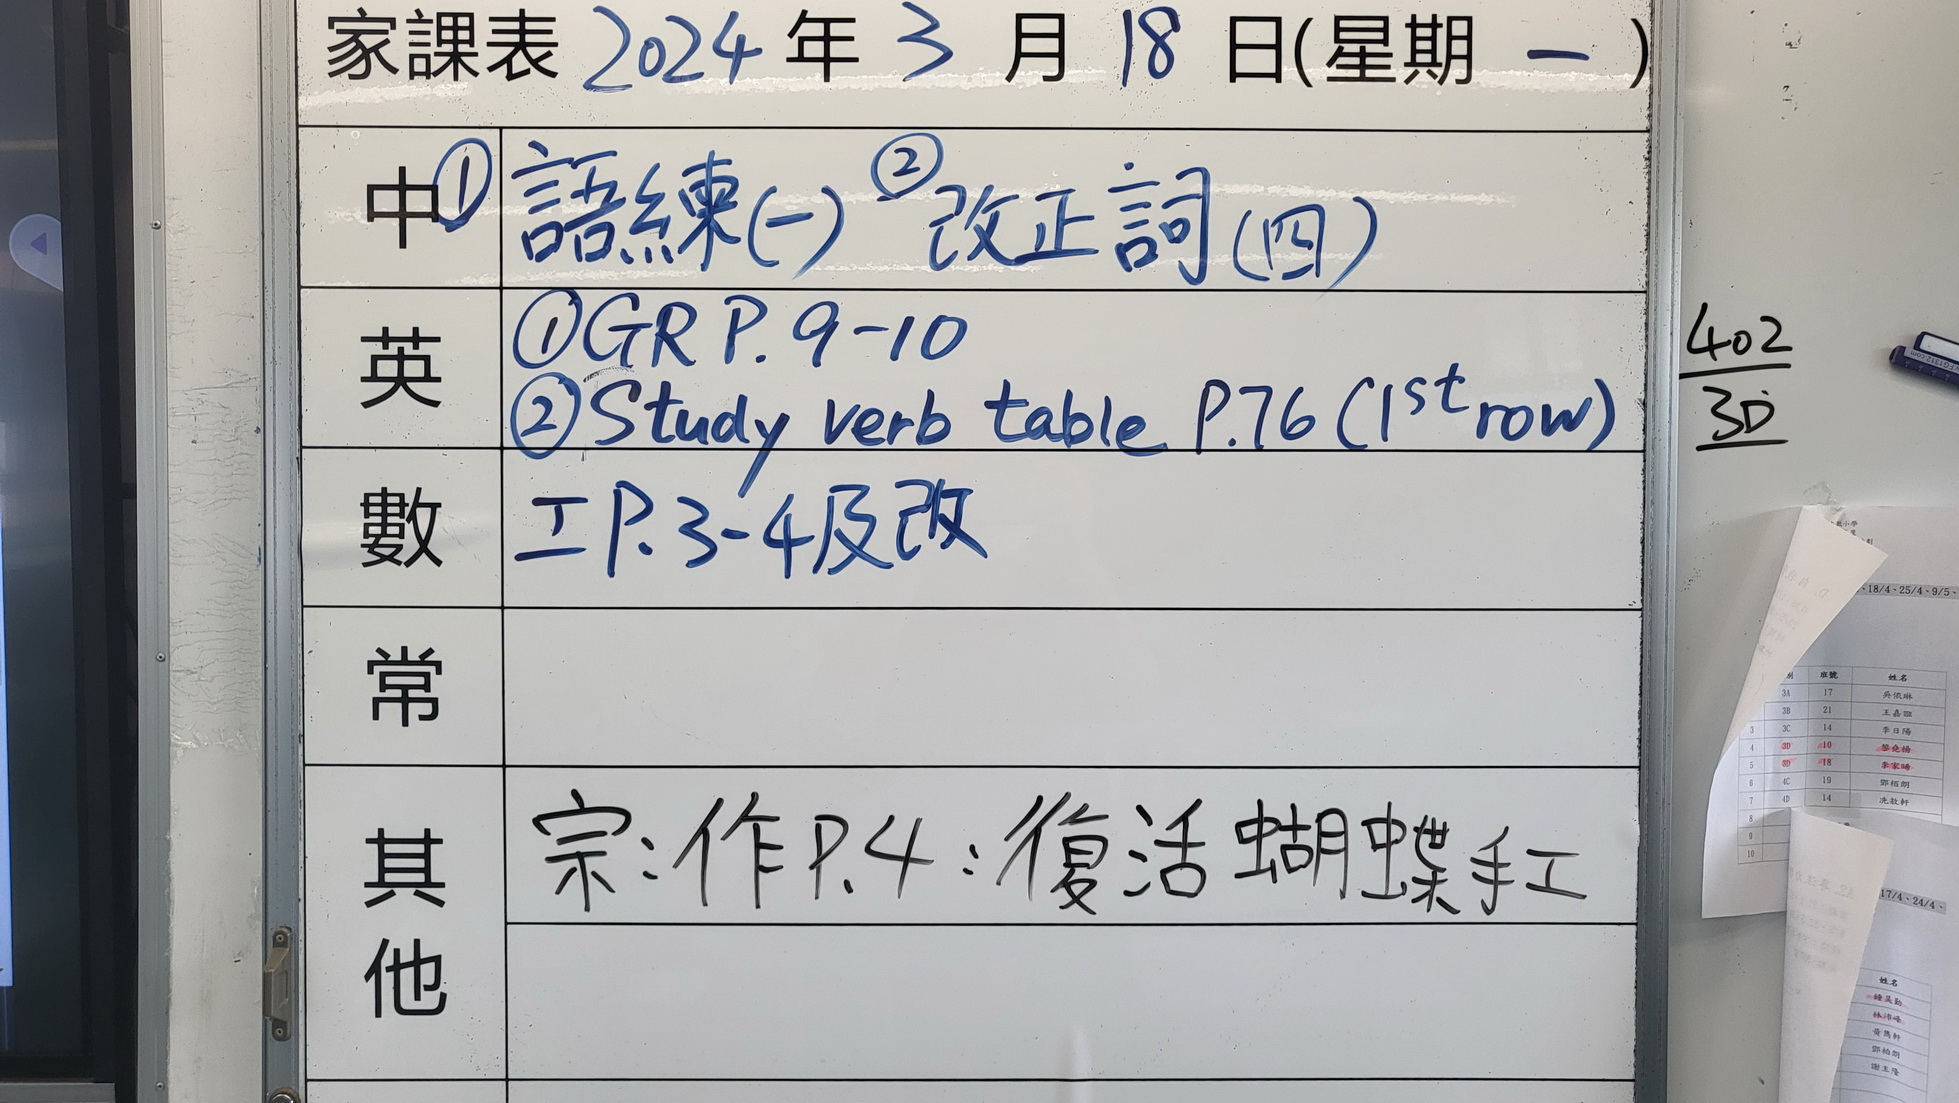 家課表 2024 年 3 月 18 日(星期 一 )
中 ① 語練(一) ② 改正詞(四)
英 ① GR P. 9-10
② Study verb table P.76 (1st row)
數 工 P. 3-4 及改
常
其他 宗:作 P.4:復活蝴蝶手工
402
3D
、18/4、25/4、9/5、
班號 姓名
3A 17
3B 21
3 3C 14 李日陽
4 3D 10
5 3D 18
6 4C 19 鄧栢朗
7 4D 14
8
9
10
17/4、24/4、
姓名